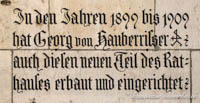 In den Jahren 1899 bis 1909
hat Georg von Hauberrisser
auch diesen neuen Teil des Rat-
hauses erbaut und eingerichtet: